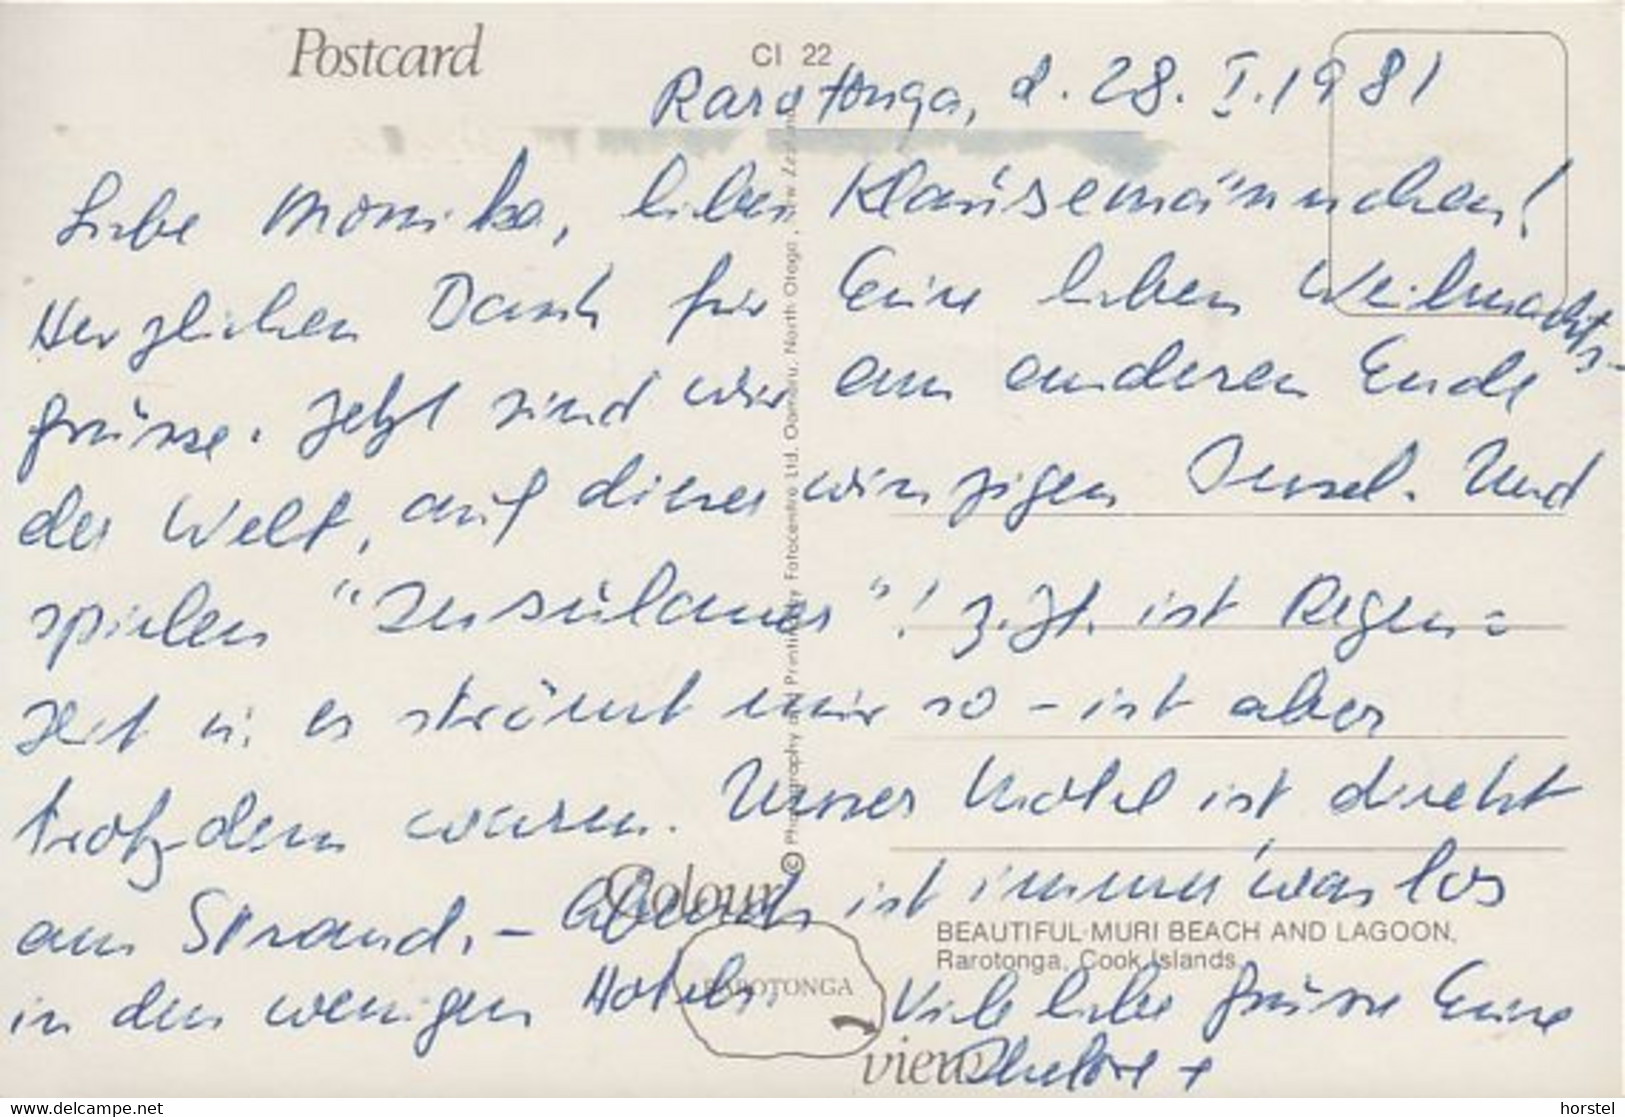 Postcard
CI 22
Rarotonga, d. 28. I. 1981
Liebe Monika, lieber Klausemännchen!
Herzlichen Dank für Eure lieben Weihnachts-
grüsse. Jetzt sind wir am anderen Ende
der Welt, auf dieser winzigen Insel. Und
spielen "Insulaner"! Z. Zt. ist Regen=
zeit u. es strömt nur so - ist aber
trotzdem warm. Unser Motel ist direkt
am Strand. - Abends ist immer was los
in den wenigen Hotels. Viele liebe Grüsse Eure
Colour
view
RAROTONGA
BEAUTIFUL MURI BEACH AND LAGOON,
Rarotonga, Cook Islands.
© Photography and Printing by Fotocentre Ltd. Oamaru, North Otago, New Zealand
https://www.delcampe.net
horstel